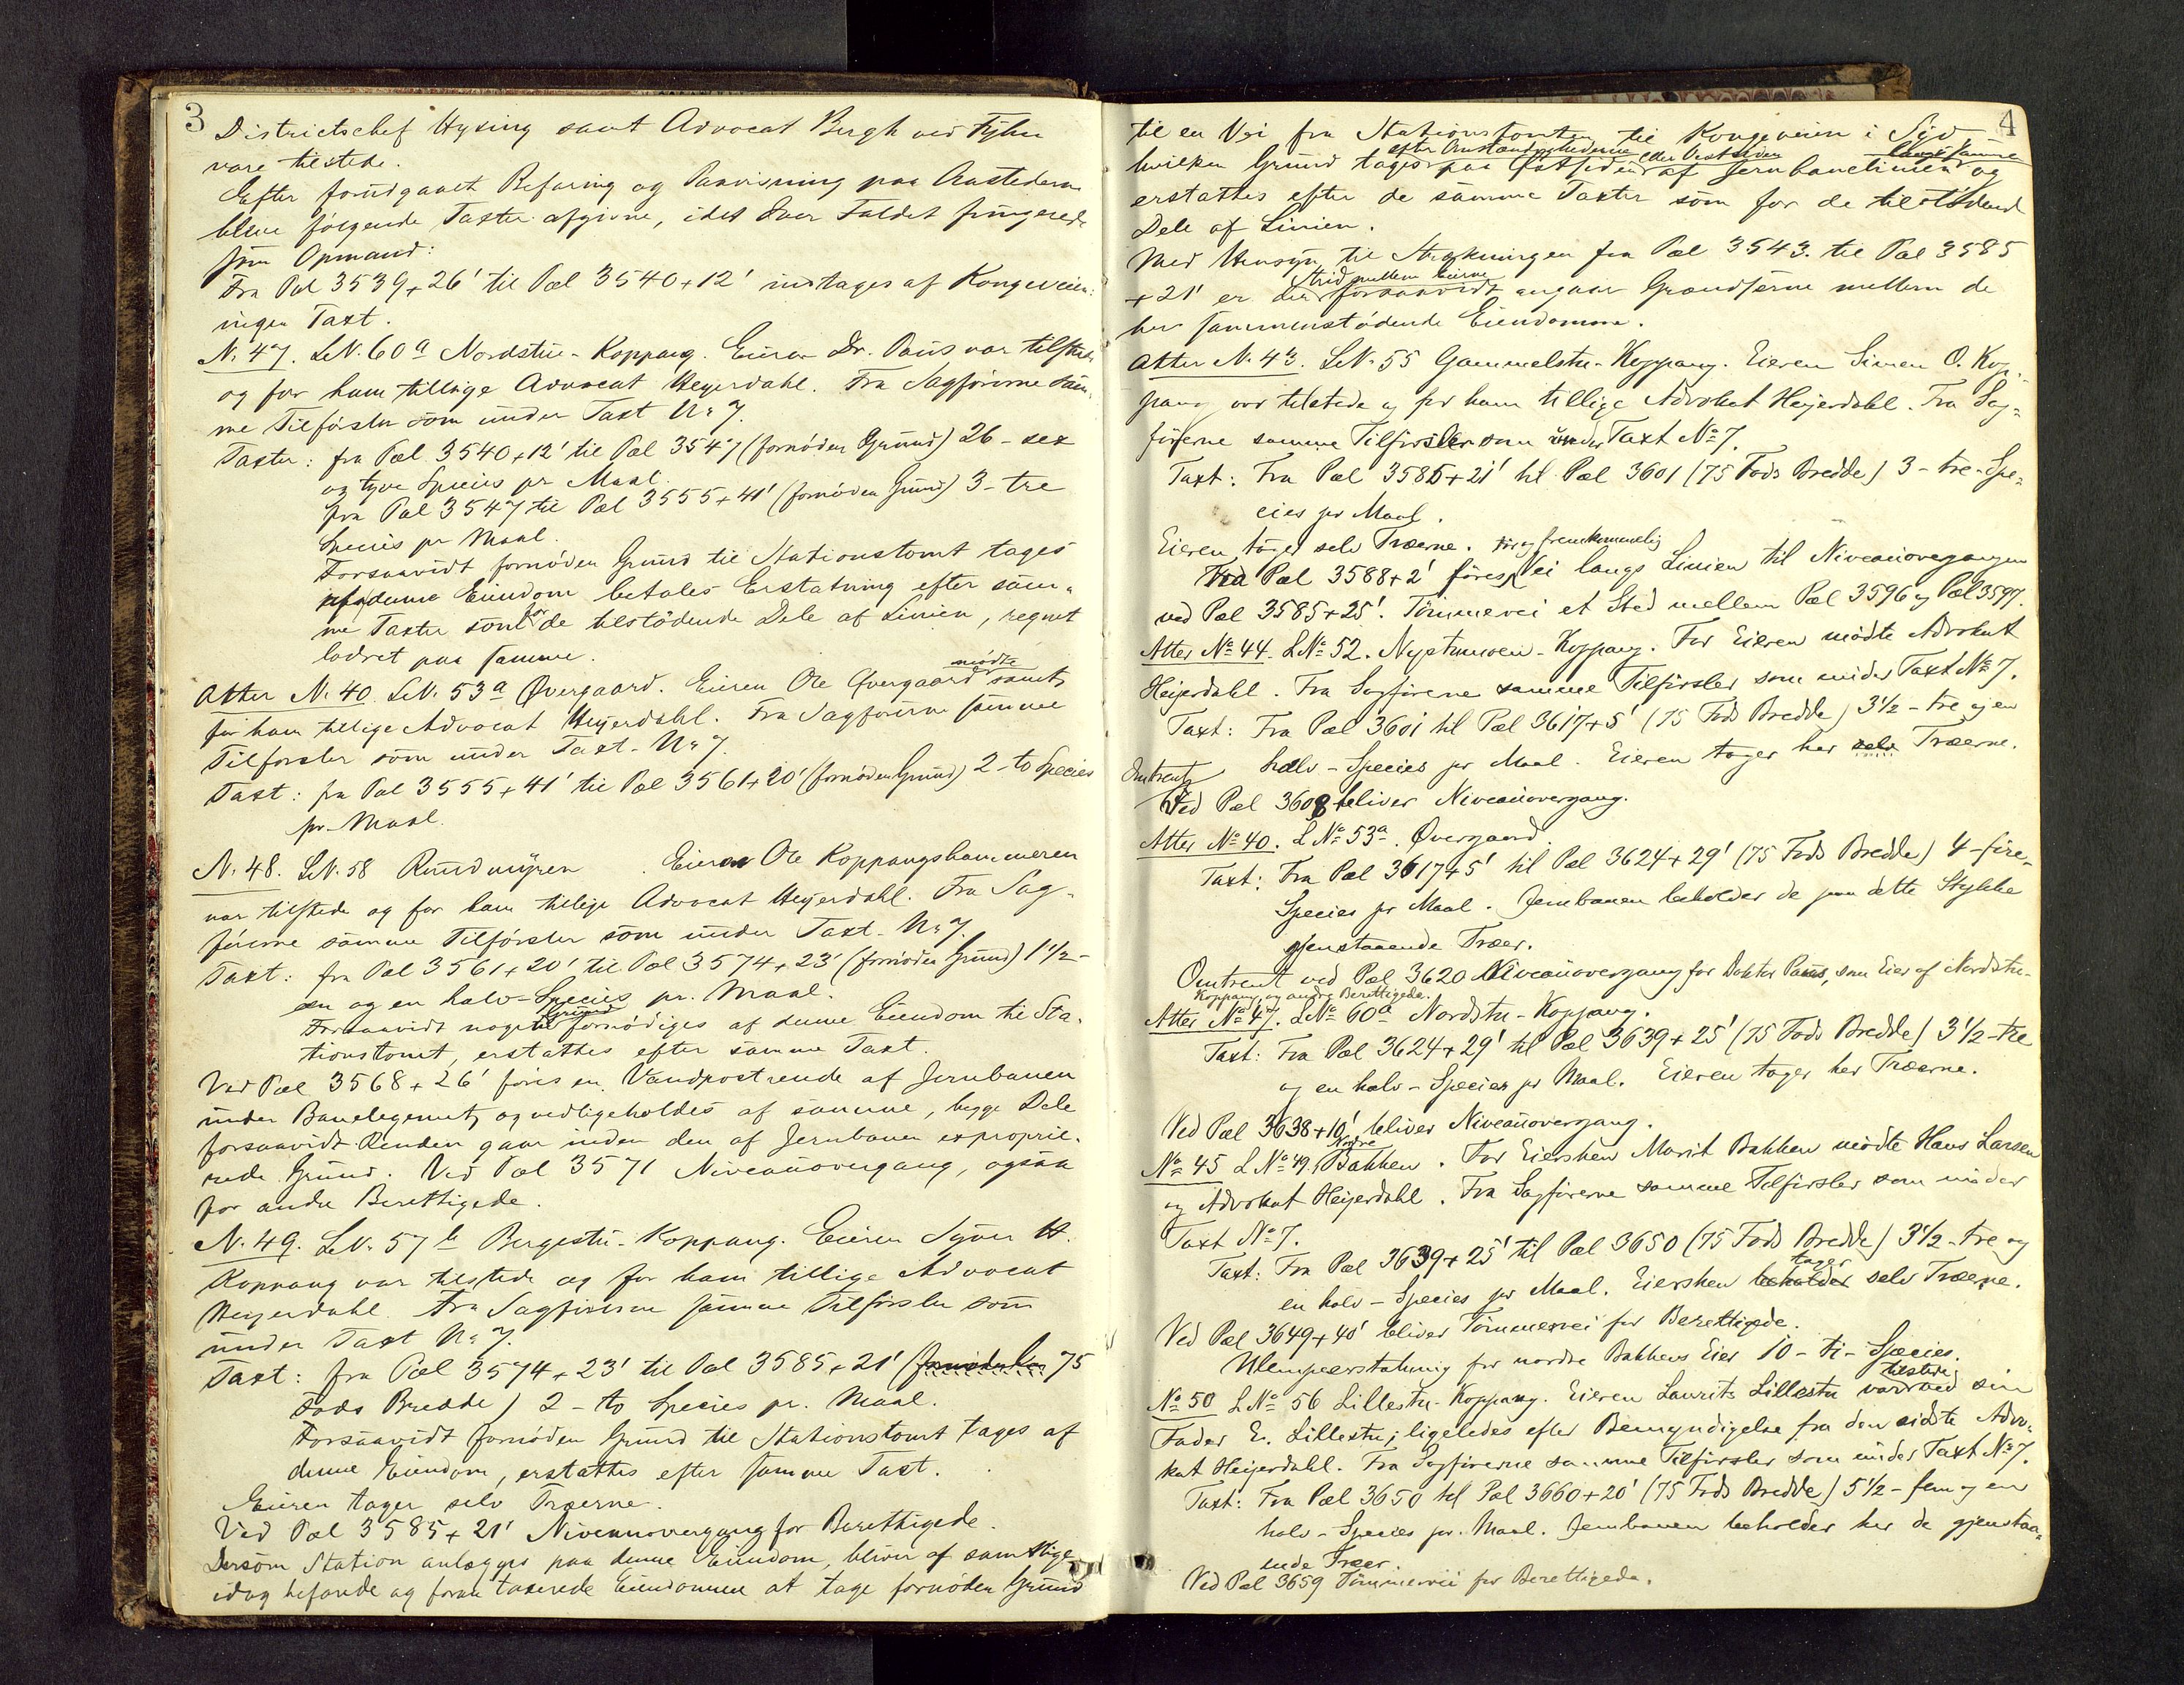 3
Districtschef Hysing samt Advocat Bergh ved Fylin
vare tilstede.
Efter forudgaaet Befaring og Paavisning paa Aastederne
bleve følgende Taxter afgivne, idet Foldet fungerede
som Opmand:
Fra Pæl 3539+26' til Pæl 3540+12' indtages af Kongeveien:
ingen Taxt.
N. 47. LN. 60a Nordstu-Koppang. Eieren Dr. Paus var tilstede
og for ham tillige Advocat Heyerdahl. Fra Sagførerne sam-
me Tilførsler som under Taxt No 7.
Taxter: fra Pæl 3540+12' til Pæl 3547 (fornøden Grund) 26 - sex
og tyve Species pr Maal.
fra Pæl 3547 til Pæl 3555+41' (fornøden Grund) 3 - tre
Species pr Maal.
Forsaavidt fornøden Grund til Stationstomt tages
af denne Eiendom betales Erstatning efter sam-
me Taxter som for de tilstødende Dele af Linien, regnet
lodret paa samme.
Atter N. 40 LN. 53a Øvergaard. Eieren Ole Øvergaard mødte samt
for ham tillige Advocat Heyerdahl. Fra Sagførerne samme
Tilførsler som under Taxt No 7.
Taxt: fra Pæl 3555+41' til Pæl 3561+20' (fornøden Grund) 2 - to Species
pr. Maal.
N. 48. LN. 58 Rundmyren. Eieren Ole Koppangshammeren
var tilstede og for ham tillige Advocat Heyerdahl. Fra Sag-
førerne samme Tilførsler som under Taxt No 7.
Taxt: fra Pæl 3561+20' til Pæl 3574+23' (fornøden Grund) 1 1/2 -
en og en halv - Species pr. Maal.
Forsaavidt noget Grund fornødiges af denne Eiendom til Sta-
tionstomt, erstattes efter samme Taxt.
Ved Pæl 3568+26' føres en Vandpostrende af Jernbanen
under Banelegemet, og vedligeholdes af samme, begge Dele
forsaavidt Renden gaar inden den af Jernbanen exproprie-
rede Grund. Ved Pæl 3571 Niveauovergang, ogsaa
for andre Berettigede.
N. 49. LN. 57b Bergestu-Koppang. Eieren Syver H.
Koppang var tilstede og for ham tillige Advocat
Heyerdahl. Fra Sagførerne samme Tilførsler som
under Taxt No 7.
Taxt: fra Pæl 3574+23' til Pæl 3585+21' (75
Fods Bredde) 2 - to Species pr. Maal.
Forsaavidt fornøden Grund til Stationstomt tages af
denne Eiendom, erstattes efter samme Taxt.
Eieren tager selv Træerne.
Ved Pæl 3585+21' Niveauovergang for Berettigede.
Dersom Station anlægges paa denne Eiendom, bliver af samtlige
idag befarede og foran taxerede Eiendomme at tage fornøden Grund
4
til en Vei fra Stationstomten til Kongeveien i Syd
efter Omstændighederne eller Vestsiden langs samme
hvilken Grund tages paa Østsiden af Jernbanelinien og
erstattes efter de samme Taxter som for de tilstødende
Dele af Linien.
Med Hensyn til Strækningen fra Pæl 3543 til Pæl 3585
Strid mellem Eierne
+21' er der forsaavidt angaar Grændserne mellem de
her sammenstødende Eiendomme.
Atter N. 43. LN. 55 Gammelstu-Koppang. Eieren Simen O. Kop-
pang var tilstede og for ham tillige Advokat Heijerdahl. Fra Sag-
førerne samme Tilførsler som under Taxt No 7.
Taxt: Fra Pæl 3585+21' til Pæl 3601 (75 Fods Bredde) 3 - tre - Spe-
cies pr Maal.
Eieren tager selv Træerne.
tør og fremkommelig
Ved Pæl 3588+2' føres Vei langs Linien til Niveauovergangen
ved Pæl 3585+25'. Tømmervei et Sted mellem Pæl 3596 og Pæl 3597.
Atter No 44. LNo 52. Nystumoen-Koppang. For Eieren mødte Advokat
Heijerdahl. Fra Sagførerne samme Tilførsler som under Taxt No 7.
Taxt: Fra Pæl 3601 til Pæl 3617+5' (75 Fods Bredde) 3 1/2 - tre og en
halv - Species pr Maal. Eieren tager her selv Træerne.
Omtrent
Ved Pæl 3608 bliver Niveauovergang.
Atter No 40. LNo 53a. Øvergaard.
Taxt: Fra Pæl 3617+5' til Pæl 3624+29' (75 Fods Bredde) 4 - fire -
Species pr Maal. Jernbanen beholder de paa dette Stykke
gjenstaaende Træer.
Omtrent ved Pæl 3620 Niveauovergang for Doktor Paus, som Eier af Nordstu-
Koppang og andre Berettigede.
Atter No 47. LNo 60a Nordstu-Koppang.
Taxt: Fra Pæl 3624+29' til Pæl 3639+25' (75 Fods Bredde) 3 1/2 - tre
og en halv - Species pr Maal. Eieren tager her Træerne.
Ved Pæl 3638+10' bliver Niveauovergang.
No 45 LNo 49. Nordre Bakken. For Eiersken Marit Bakken mødte Hans Larsen
og Advokat Heijerdahl. Fra Sagførerne samme Tilførsler som under
Taxt No 7.
Taxt: Fra Pæl 3639+25' til Pæl 3650 (75 Fods Bredde) 3 1/2 - tre og
en halv - Species pr Maal. Eiersken beholder tager selv Træerne.
Ved Pæl 3649+40' bliver Tømmervei for Berettigede.
Ulempeerstatning for nordre Bakkens Eier 10 - ti - Species.
No 50 LNo 56 Lillestu-Koppang. Eieren Laurits Lillestu var tilstede ved sin
Fader E. Lillestu; ligeledes efter Bemyndigelse fra den sidste Advo-
kat Heijerdahl. Fra Sagførerne samme Tilførsler som under Taxt No 7.
Taxt: Fra Pæl 3650 til Pæl 3660+20' (75 Fods Bredde) 5 1/2 - fem og en
halv - Species pr. Maal. Jernbanen beholder her de gjenstaa-
ende Træer.
Ved Pæl 3659 Tømmervei for Berettigede.